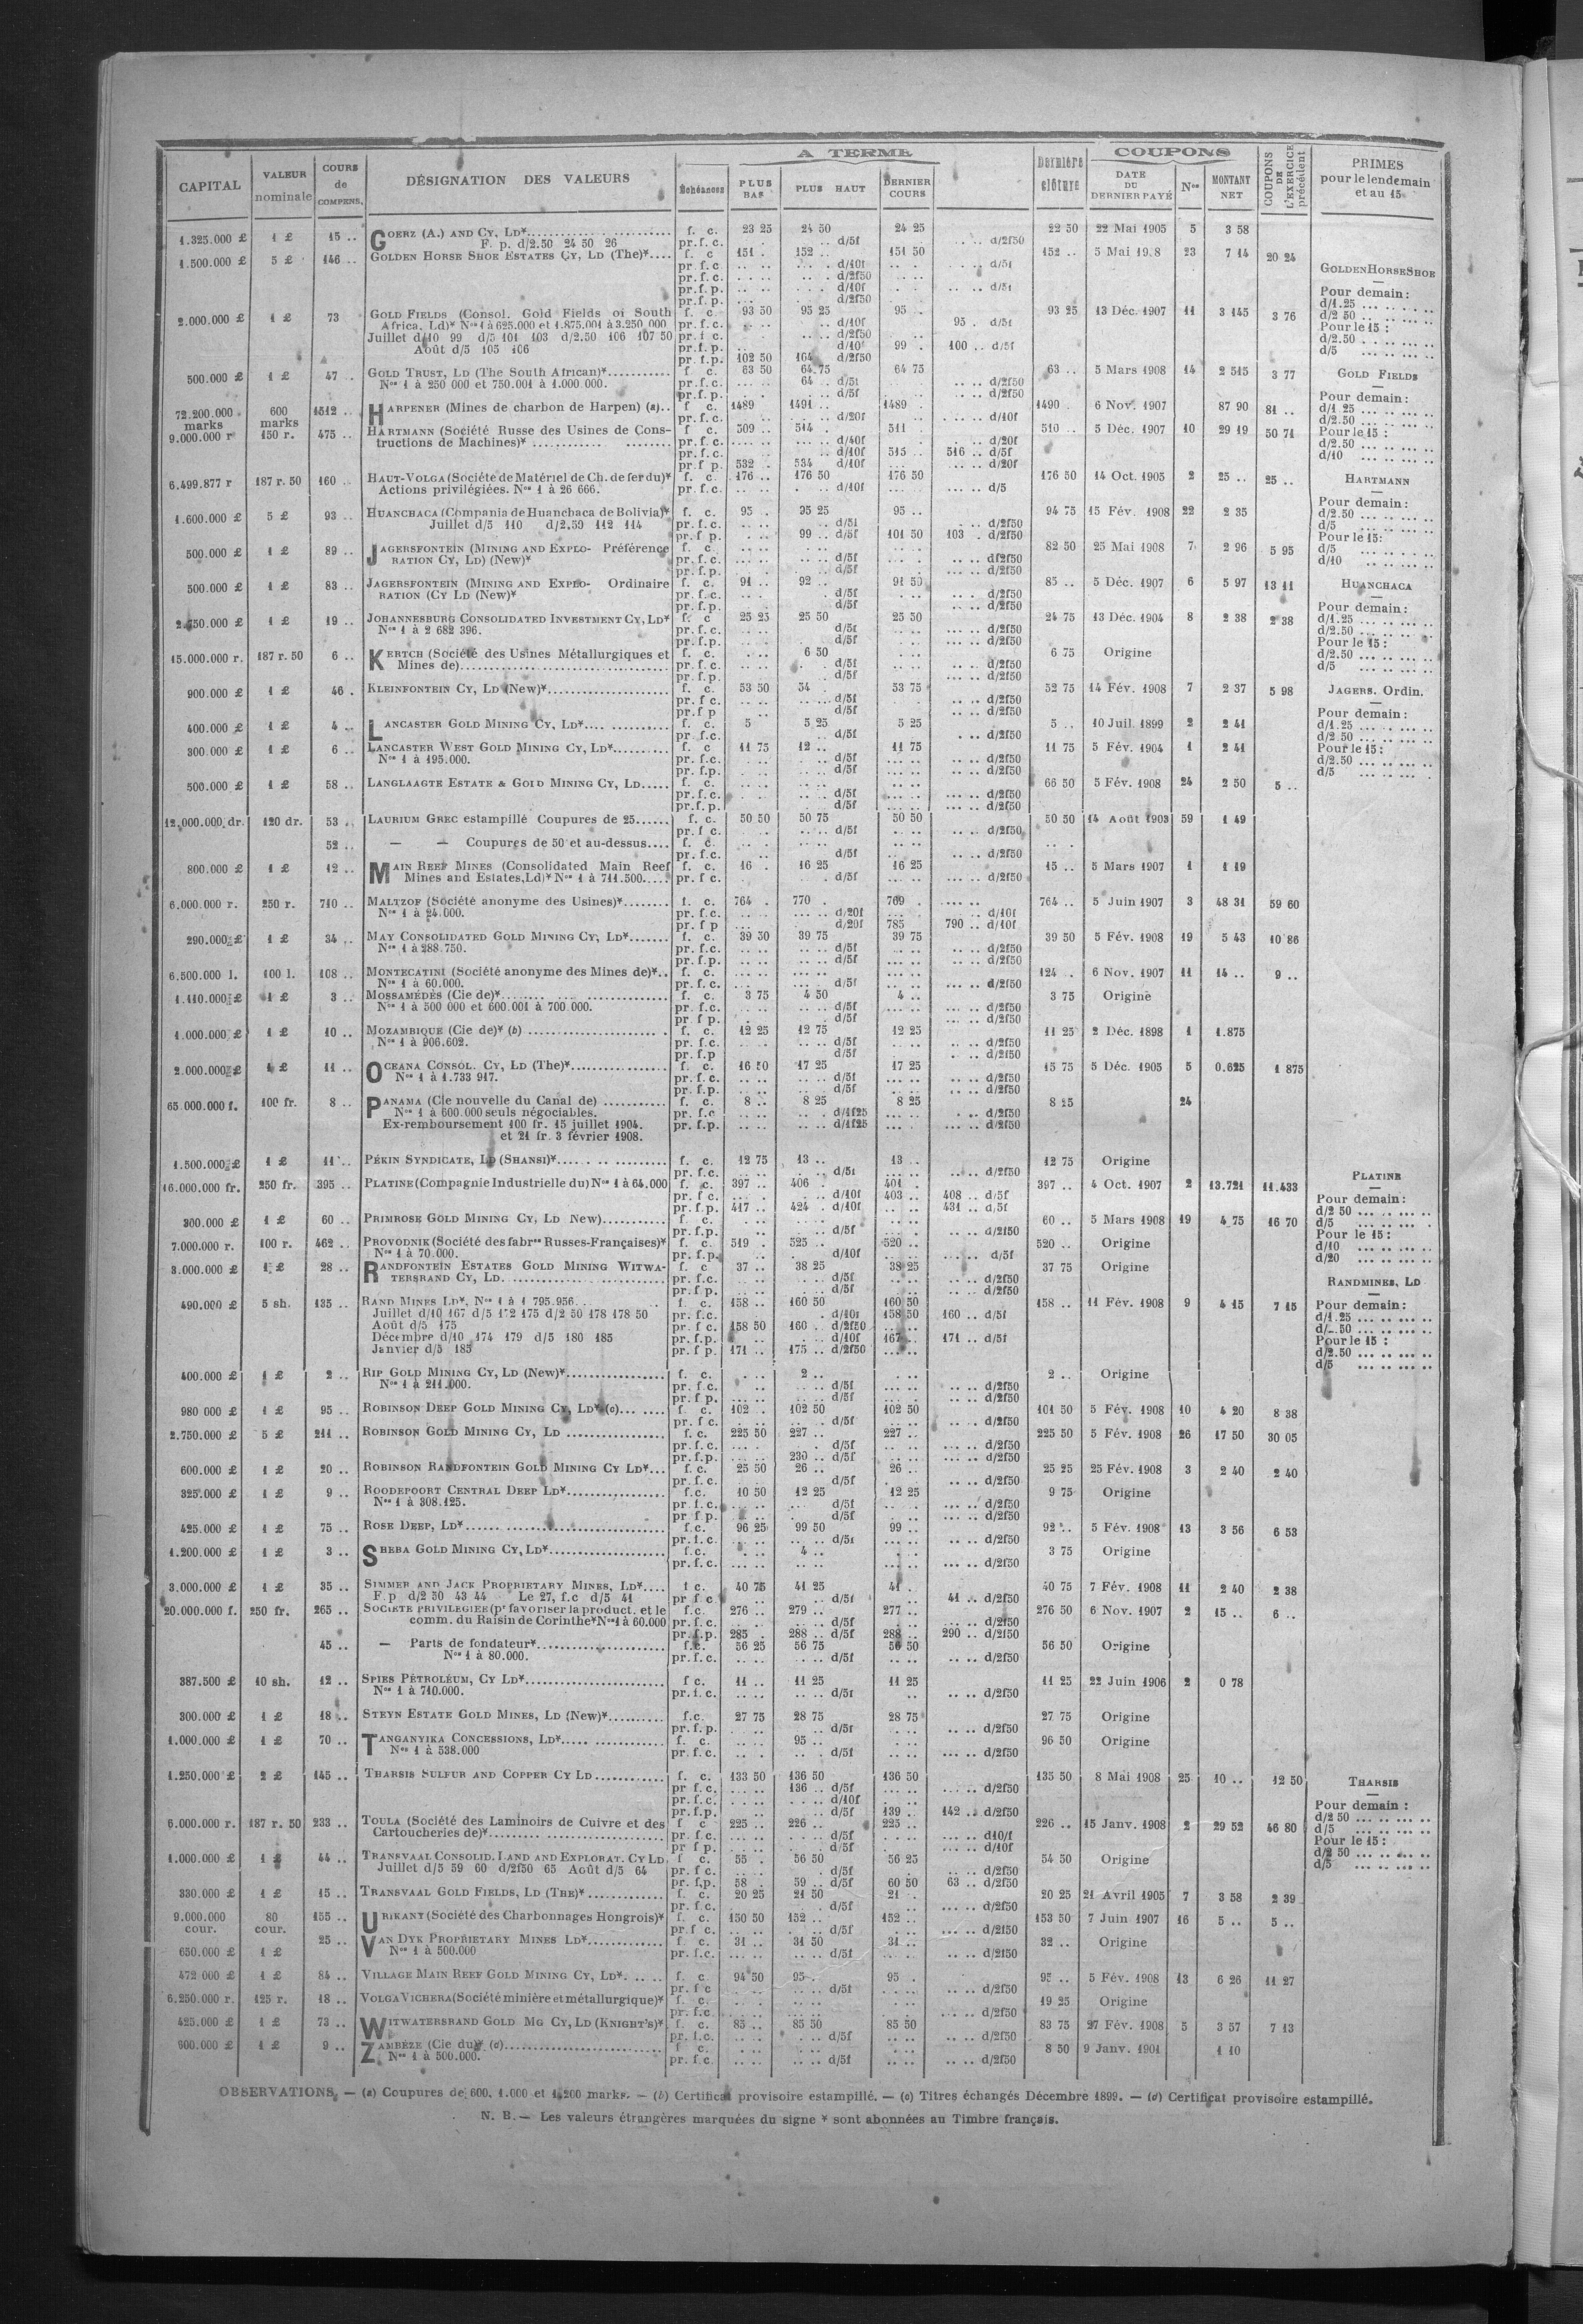 CAPITAL VALEUR nominale COURS de COMPENS. DÉSIGNATION DES VALEURS A TERME Échéances PLUS BAS PLUS HAUT DERNIER COURS Dernière clôture COUPONS DATE DU DERNIER PAYÉ Nos MONTANT NET COUPONS DE L'EXERCICE précédent PRIMES pour le lendemain et au 15
1.325.000 £ 1 £ 15 .. GOERZ (A.) AND CY, LD* f. c. 23 25 24 50 24 25 22 50 22 Mai 1905 5 3 58
F. p. d/2.50 24 50 26 pr.f.c. d/5f d/2f50
1.500.000 £ 5 £ 146 .. GOLDEN HORSE SHOE ESTATES CY, LD (The)* f. c 151 . 152 .. 151 50 152 .. 5 Mai 19.8 23 7 14 20 24
pr.f.c d/10f d/5f
pr.f.c. d/2f50
pr.f.p. d/10f d/5f
pr.f.p. d/2f50
2.000.000 £ 1 £ 73 GOLD FIELDS (Consol. Gold Fields of South f. c 93 50 95 25 95 . 93 25 13 Déc. 1907 11 3 145 3 76
Africa, Ld)* Nos 1 à 625.000 et 1.875.001 à 3.250 000 pr.f.c. d/10f 95 . d/5f
Juillet d/10 99 d/5 101 103 d/2.50 106 107 50 pr.f c. d/2f50
Août d/5 105 106 pr.f.p. d/10f 99 . 100 .. d/5f
pr. f.p. 102 50 104 d/2f50
500.000 £ 1 £ 47 . GOLD TRUST, LD (The South African)* f c. 63 50 64.75 64 75 63 .. 5 Mars 1908 14 2 515 3 77
Nos 1 à 250 000 et 750.001 à 1.000 000. pr.f.c. 64 .. d/5f d/2f50
pr.f.p. d/5f d/2f50
72.200.000 marks 600 marks 1512 .. HARPENER (Mines de charbon de Harpen) (a).. f c. 1489 1491 .. 1489 . 1490 . 6 Nov. 1907 87 90 81 ..
pr.f.c. d/20f d/10f
9.000.000 r 150 r. 475 .. HARTMANN (Société Russe des Usines de Cons- f c. 509 .. 514 . 511 . 510 .. 5 Déc. 1907 10 29 19 50 71
tructions de Machines)* pr.f.c. d/40f d/20f
pr.f.c. d/10f 515 .. 516 .. d/5f
pr.f p. 532 . 534 d/10f d/20f
6.499.877 r 187 r. 50 160 .. HAUT-VOLGA (Société de Matériel de Ch. de fer du)* f. c. 176 .. 176 50 176 50 176 50 14 Oct. 1905 2 25 .. 25 ..
Actions privilégiées. Nos 1 à 26 666. pr.f.c. d/10f d/5
1.600.000 £ 5 £ 93 .. HUANCHACA (Compania de Huanchaca de Bolivia)* f. c. 95 . 95 25 95 .. 94 75 15 Fév. 1908 22 2 35
Juillet d/5 110 d/2.50 112 114 pr.f.c. d/5f d/2f50
pr.f p. 99 .. d/5f 101 50 103 . d/2f50
500.000 £ 1 £ 89 .. JAGERSFONTEIN (MINING AND EXPLO- Préférence f. c. 82 50 25 Mai 1908 7 2 96 5 95
RATION CY, LD) (New)* pr.f.c. d/5f d/2f50
pr.f.p. d/5f d/2f50
500.000 £ 1 £ 83 .. JAGERSFONTEIN (MINING AND EXPLO- Ordinaire f. c. 91 .. 92 .. 91 50 85 .. 5 Déc. 1907 6 5 97 13 11
RATION (CY LD (New)* pr.f.c. d/5f d/2f50
pr.f.p. d/5f d/2f50
2.750.000 £ 1 £ 19 .. JOHANNESBURG CONSOLIDATED INVESTMENT CY, LD* f. c 25 25 25 50 25 50 24 75 13 Déc. 1904 8 2 38 2 38
Nos 1 à 2 682 396. pr.f.c. d/5f d/2f50
pr.f.p. d/5f d/2f50
15.000.000 r. 187 r. 50 6 .. KERTCH (Société des Usines Métallurgiques et f. c. 6 50 6 75 Origine
Mines de) pr.f.c. d/5f d/2f50
pr.f.p. d/5f d/2f50
900.000 £ 1 £ 46 . KLEINFONTEIN CY, LD (New)* f. c. 53 50 54 . 53 75 52 75 14 Fév. 1908 7 2 37 5 98
pr.f c. d/5f d/2f50
pr.f p d/5f d/2f50
400.000 £ 1 £ 4 .. LANCASTER GOLD MINING CY, LD* f. c. 5 5 25 5 25 5 .. 10 Juil. 1899 2 2 41
pr.f.c. d/5f d/2f50
300.000 £ 1 £ 6 .. LANCASTER WEST GOLD MINING CY, LD* f. c 11 75 12 .. 11 75 11 75 5 Fév. 1904 1 2 41
Nos 1 à 195.000. pr.f.c. d/5f d/2f50
pr.f.p. d/5f d/2f50
500.000 £ 1 £ 58 .. LANGLAAGTE ESTATE & GOLD MINING CY, LD f. c. 66 50 5 Fév. 1908 24 2 50 5 ..
pr.f.c. d/5f d/2f50
pr.f.p. d/5f d/2f50
12.000.000 dr. 120 dr. 53 .. LAURIUM GREC estampillé Coupures de 25 f. c. 50 50 50 75 50 50 50 50 14 Août 1903 59 1 49
pr.f c. d/5f d/2f50
52 .. — — Coupures de 50 et au-dessus f. c.
pr.f.c. d/5f d/2f50
800.000 £ 1 £ 12 .. MAIN REEF MINES (Consolidated Main Reef f. c. 16 . 16 25 16 25 15 .. 5 Mars 1907 1 1 19
Mines and Estates, Ld)* Nos 1 à 711.500 pr.f c. d/5f d/2f50
6.000.000 r. 250 r. 710 .. MALTZOF (Société anonyme des Usines)* f. c. 764 . 770 . 769 . 764 .. 5 Juin 1907 3 48 31 59 60
Nos 1 à 24.000. pr.f.c. d/20f d/10f
pr.f p d/20f 785 790 .. d/10f
290.000 £ 1 £ 34 .. MAY CONSOLIDATED GOLD MINING CY, LD* f. c. 39 50 39 75 39 75 39 50 5 Fév. 1908 19 5 43 10 86
Nos 1 à 288.750. pr.f.c. d/5f d/2f50
pr.f.p. d/5f d/2f50
6.500.000 l. 100 l. 108 .. MONTECATINI (Société anonyme des Mines de)* f. c. 124 . 6 Nov. 1907 11 14 .. 9 ..
Nos 1 à 60.000. pr.f.c. d/5f d/2f50
1.110.000 £ 1 £ 3 .. MOSSAMÉDÈS (Cie de)* f. c. 3 75 4 50 4 .. 3 75 Origine
Nos 1 à 500 000 et 600.001 à 700 000. pr.f.c. d/5f d/2f50
pr.f p. d/5f d/2f50
1.000.000 £ 1 £ 10 .. MOZAMBIQUE (Cie de)* (b) f. c. 12 25 12 75 12 25 11 25 2 Déc. 1898 1 1.875
Nos 1 à 906.602. pr.f.c. d/5f d/2f50
pr.f.p d/5f d/2f50
2.000.000 £ 1 £ 11 .. OCEANA CONSOL. CY, LD (The)* f. c. 16 50 17 25 17 25 15 75 5 Déc. 1905 5 0.625 1 875
Nos 1 à 1.733 917. pr.f.c. d/5f d/2f50
pr.f.p. d/5f d/2f50
65.000.000 f. 100 fr. 8 .. PANAMA (Cie nouvelle du Canal de) f. c. 8 .. 8 25 8 25 8 25 24
Nos 1 à 600.000 seuls négociables. pr.f.c d/1f25 d/2f50
Ex-remboursement 100 fr. 15 juillet 1904. pr.f.p. d/1f25 d/2f50
et 21 fr. 3 février 1908.
1.500.000 £ 1 £ 11 .. PÉKIN SYNDICATE, LD (SHANSI)* f. c. 12 75 13 .. 13 .. 12 75 Origine
pr.f.c. d/5f d/2f50
16.000.000 fr. 250 fr. 395 .. PLATINE (Compagnie Industrielle du) Nos 1 à 64.000 f. c. 397 .. 406 . 401 . 397 .. 4 Oct. 1907 2 13.721 11.433
pr.f c. d/10f 403 .. 408 .. d/5f
pr.f.p. 417 .. 424 . d/10f 431 .. d/5f
300.000 £ 1 £ 60 .. PRIMROSE GOLD MINING CY, LD New) f c. 60 .. 5 Mars 1908 19 4 75 16 70
pr.f.p. d/5f d/2f50
7.000.000 r. 100 r. 462 .. PROVODNIK (Société des fabres Russes-Françaises)* f. c. 519 . 525 .. 520 .. 520 .. Origine
Nos 1 à 70.000. pr.f.p. d/10f d/5f
3.000.000 £ 1 £ 28 .. RANDFONTEIN ESTATES GOLD MINING WITWA- f. c 37 .. 38 25 38 25 37 75 Origine
TERSRAND CY, LD. pr.f.c. d/5f d/2f50
pr.f.p. d/5f d/2f50
490.000 £ 5 sh. 135 .. RAND MINES LD*, Nos 1 à 1 795.956 f. c. 158 .. 160 50 160 50 158 .. 11 Fév. 1908 9 4 15 7 15
Juillet d/10 167 d/5 172 175 d/2 50 178 178 50 pr.f.c. d/10f 158 50 160 .. d/5f
Août d/5 175 pr.f c. 158 50 160 . d/2f50
Décembre d/10 174 179 d/5 180 185 pr.f.p. d/10f 167 .. 171 .. d/5f
Janvier d/5 185 pr.f p. 171 .. 175 .. d/2f50
400.000 £ 1 £ 2 .. RIP GOLD MINING CY, LD (New)* f. c. 2 .. 2 .. Origine
Nos 1 à 211.000. pr.f c. d/5f d/2f50
pr.f p. d/5f d/2f50
980 000 £ 1 £ 95 .. ROBINSON DEEP GOLD MINING CY, LD* (c) f. c. 102 . 102 50 102 50 101 50 5 Fév. 1908 10 4 20 8 38
pr.f c. d/5f d/2f50
2.750.000 £ 5 £ 211 .. ROBINSON GOLD MINING CY, LD f. c. 225 50 227 .. 227 .. 225 50 5 Fév. 1908 26 17 50 30 05
pr.f.c. d/5f d/2f50
pr.f.p. 230 .. d/5f d/2f50
600.000 £ 1 £ 20 .. ROBINSON RANDFONTEIN GOLD MINING CY LD* f. c. 25 50 26 .. 26 .. 25 25 25 Fév. 1908 3 2 40 2 40
pr.f.c. d/5f d/2f50
325.000 £ 1 £ 9 .. ROODEPOORT CENTRAL DEEP LD* f.c. 10 50 12 25 12 25 9 75 Origine
Nos 1 à 308.125. pr.f.c. d/5f d/2f50
pr f p. d/5f d/2f50
425.000 £ 1 £ 75 .. ROSE DEEP, LD* f.c. 96 25 99 50 99 .. 92 .. 5 Fév. 1908 13 3 56 6 53
pr.f.c. d/5f d/2f50
1.200.000 £ 1 £ 3 .. SHEBA GOLD MINING CY, LD* f.c. 4 .. 3 75 Origine
pr.f.c. d/2f50
3.000.000 £ 1 £ 35 .. SIMMER AND JACK PROPRIETARY MINES, LD* f c. 40 75 41 25 41 . 40 75 7 Fév. 1908 11 2 40 2 38
F. p d/2 50 43 44 Le 27, f.c d/5 41 pr f c d/5f 41 .. d/2f50
20.000.000 f. 250 fr. 265 .. SOCIÉTÉ PRIVILÉGIÉE (pr favoriser la product. et le f.c. 276 .. 279 .. 277 .. 276 50 6 Nov. 1907 2 15 .. 6 ..
comm. du Raisin de Corinthe* Nos 1 à 60.000 pr.f.c. d/5f d/2f50
pr.f.p. 285 . 288 .. d/5f 288 .. 290 .. d/2f50
45 .. — Parts de fondateur* f.c. 56 25 56 75 56 50 56 50 Origine
Nos 1 à 80.000. pr.f.c. d/5f d/2f50
387.500 £ 10 sh. 12 .. SPIES PÉTROLÉUM, CY LD* f c. 11 .. 11 25 11 25 11 25 22 Juin 1906 2 0 78
Nos 1 à 710.000. pr.f.c. d/5f d/2f50
300.000 £ 1 £ 18 .. STEYN ESTATE GOLD MINES, LD (New)* f.c. 27 75 28 75 28 75 27 75 Origine
pr.f.p. d/5f d/2f50
1.000.000 £ 1 £ 70 .. TANGANYIKA CONCESSIONS, LD* f. c. 95 .. 96 50 Origine
Nos 1 à 538.000 pr.f.c. d/5f d/2f50
1.250.000 £ 2 £ 145 .. THARSIS SULFUR AND COPPER CY LD f. c. 133 50 136 50 136 50 135 50 8 Mai 1908 25 10 .. 12 50
pr f.c. 136 .. d/5f d/2f50
pr.f.c. d/10f
pr.f.p. d/5f 139 .. 142 .. d/2f50
6.000.000 r. 187 r. 50 233 .. TOULA (Société des Laminoirs de Cuivre et des f c 225 .. 226 .. 225 .. 226 .. 15 Janv. 1908 2 29 52 46 80
Cartoucheries de)* pr. f.c. d/5f d10/f
pr f p. d/5f d/10f
1.000.000 £ 1 £ 44 .. TRANSVAAL CONSOLID. LAND AND EXPLORAT. CY LD f c. 55 . 56 50 56 25 54 50 Origine
Juillet d/5 59 60 d/2f50 65 Août d/5 64 pr.f c. d/5f d/2f50
pr. f.p. 58 . 59 .. d/5f 60 50 63 .. d/2f50
330.000 £ 1 £ 15 .. TRANSVAAL GOLD FIELDS, LD (THE)* f. c. 20 25 21 50 21 . 20 25 21 Avril 1905 7 3 58 2 39
pr. f.c. d/5f d/2f50
9.000.000 cour. 80 cour. 155 .. URIKANY (Société des Charbonnages Hongrois)* f. c. 150 50 152 .. 152 .. 153 50 7 Juin 1907 16 5 .. 5 ..
pr.f c. d/5f d/2f50
650.000 £ 1 £ 25 .. VAN DYK PROPRIETARY MINES LD* f c. 31 .. 31 50 31 .. 32 .. Origine
Nos 1 à 500.000 pr. f.c. d/5f d/2f50
472 000 £ 1 £ 84 .. VILLAGE MAIN REEF GOLD MINING CY, LD* f. c 94 50 95 . 95 . 95 .. 5 Fév. 1908 13 6 26 11 27
pr. f c d/5f d/2f50
6.250.000 r. 125 r. 18 .. VOLGA VICHERA (Société minière et métallurgique)* f c. 19 25 Origine
pr. f.c. d/2f50
425.000 £ 1 £ 73 .. WITWATERSRAND GOLD MG CY, LD (KNIGHT'S)* f. c. 85 .. 85 50 85 50 83 75 27 Fév. 1908 5 3 57 7 13
pr. f.c. d/5f d/2f50
1 £ 9 .. ZAMBÈZE (Cie du)* (d) f c. 8 50 9 Janv. 1901 1 10
Nos 1 à 500.000. pr. f c. d/5f d/2f50
GOLDEN HORSE SHOE
Pour demain :
d/1.25
d/2 50
Pour le 15 :
d/2.50
d/5
GOLD FIELDS
Pour demain :
d/1 25
d/2.50
Pour le 15 :
d/2.50
d/10
HARTMANN
Pour demain :
d/2.50
d/5
Pour le 15 :
d/5
d/10
HUANCHACA
Pour demain :
d/1.25
d/2.50
Pour le 15 :
d/2.50
d/5
JAGERS. Ordin.
Pour demain :
d/1.25
d/2 50
Pour le 15 :
d/2.50
d/5
PLATINE
Pour demain :
d/2 50
d/5
Pour le 15 :
d/10
d/20
RANDMINES, LD
Pour demain :
d/1.25
d/2.50
Pour le 15 :
d/2.50
d/5
THARSIS
Pour demain :
d/2 50
d/5
Pour le 15 :
d/2 50
d/5
OBSERVATIONS. — (a) Coupures de 600. 1.000 et 1.200 marks. — (b) Certificat provisoire estampillé. — (c) Titres échangés Décembre 1899. — (d) Certificat provisoire estampillé.
N. B. — Les valeurs étrangères marquées du signe * sont abonnées au Timbre français.